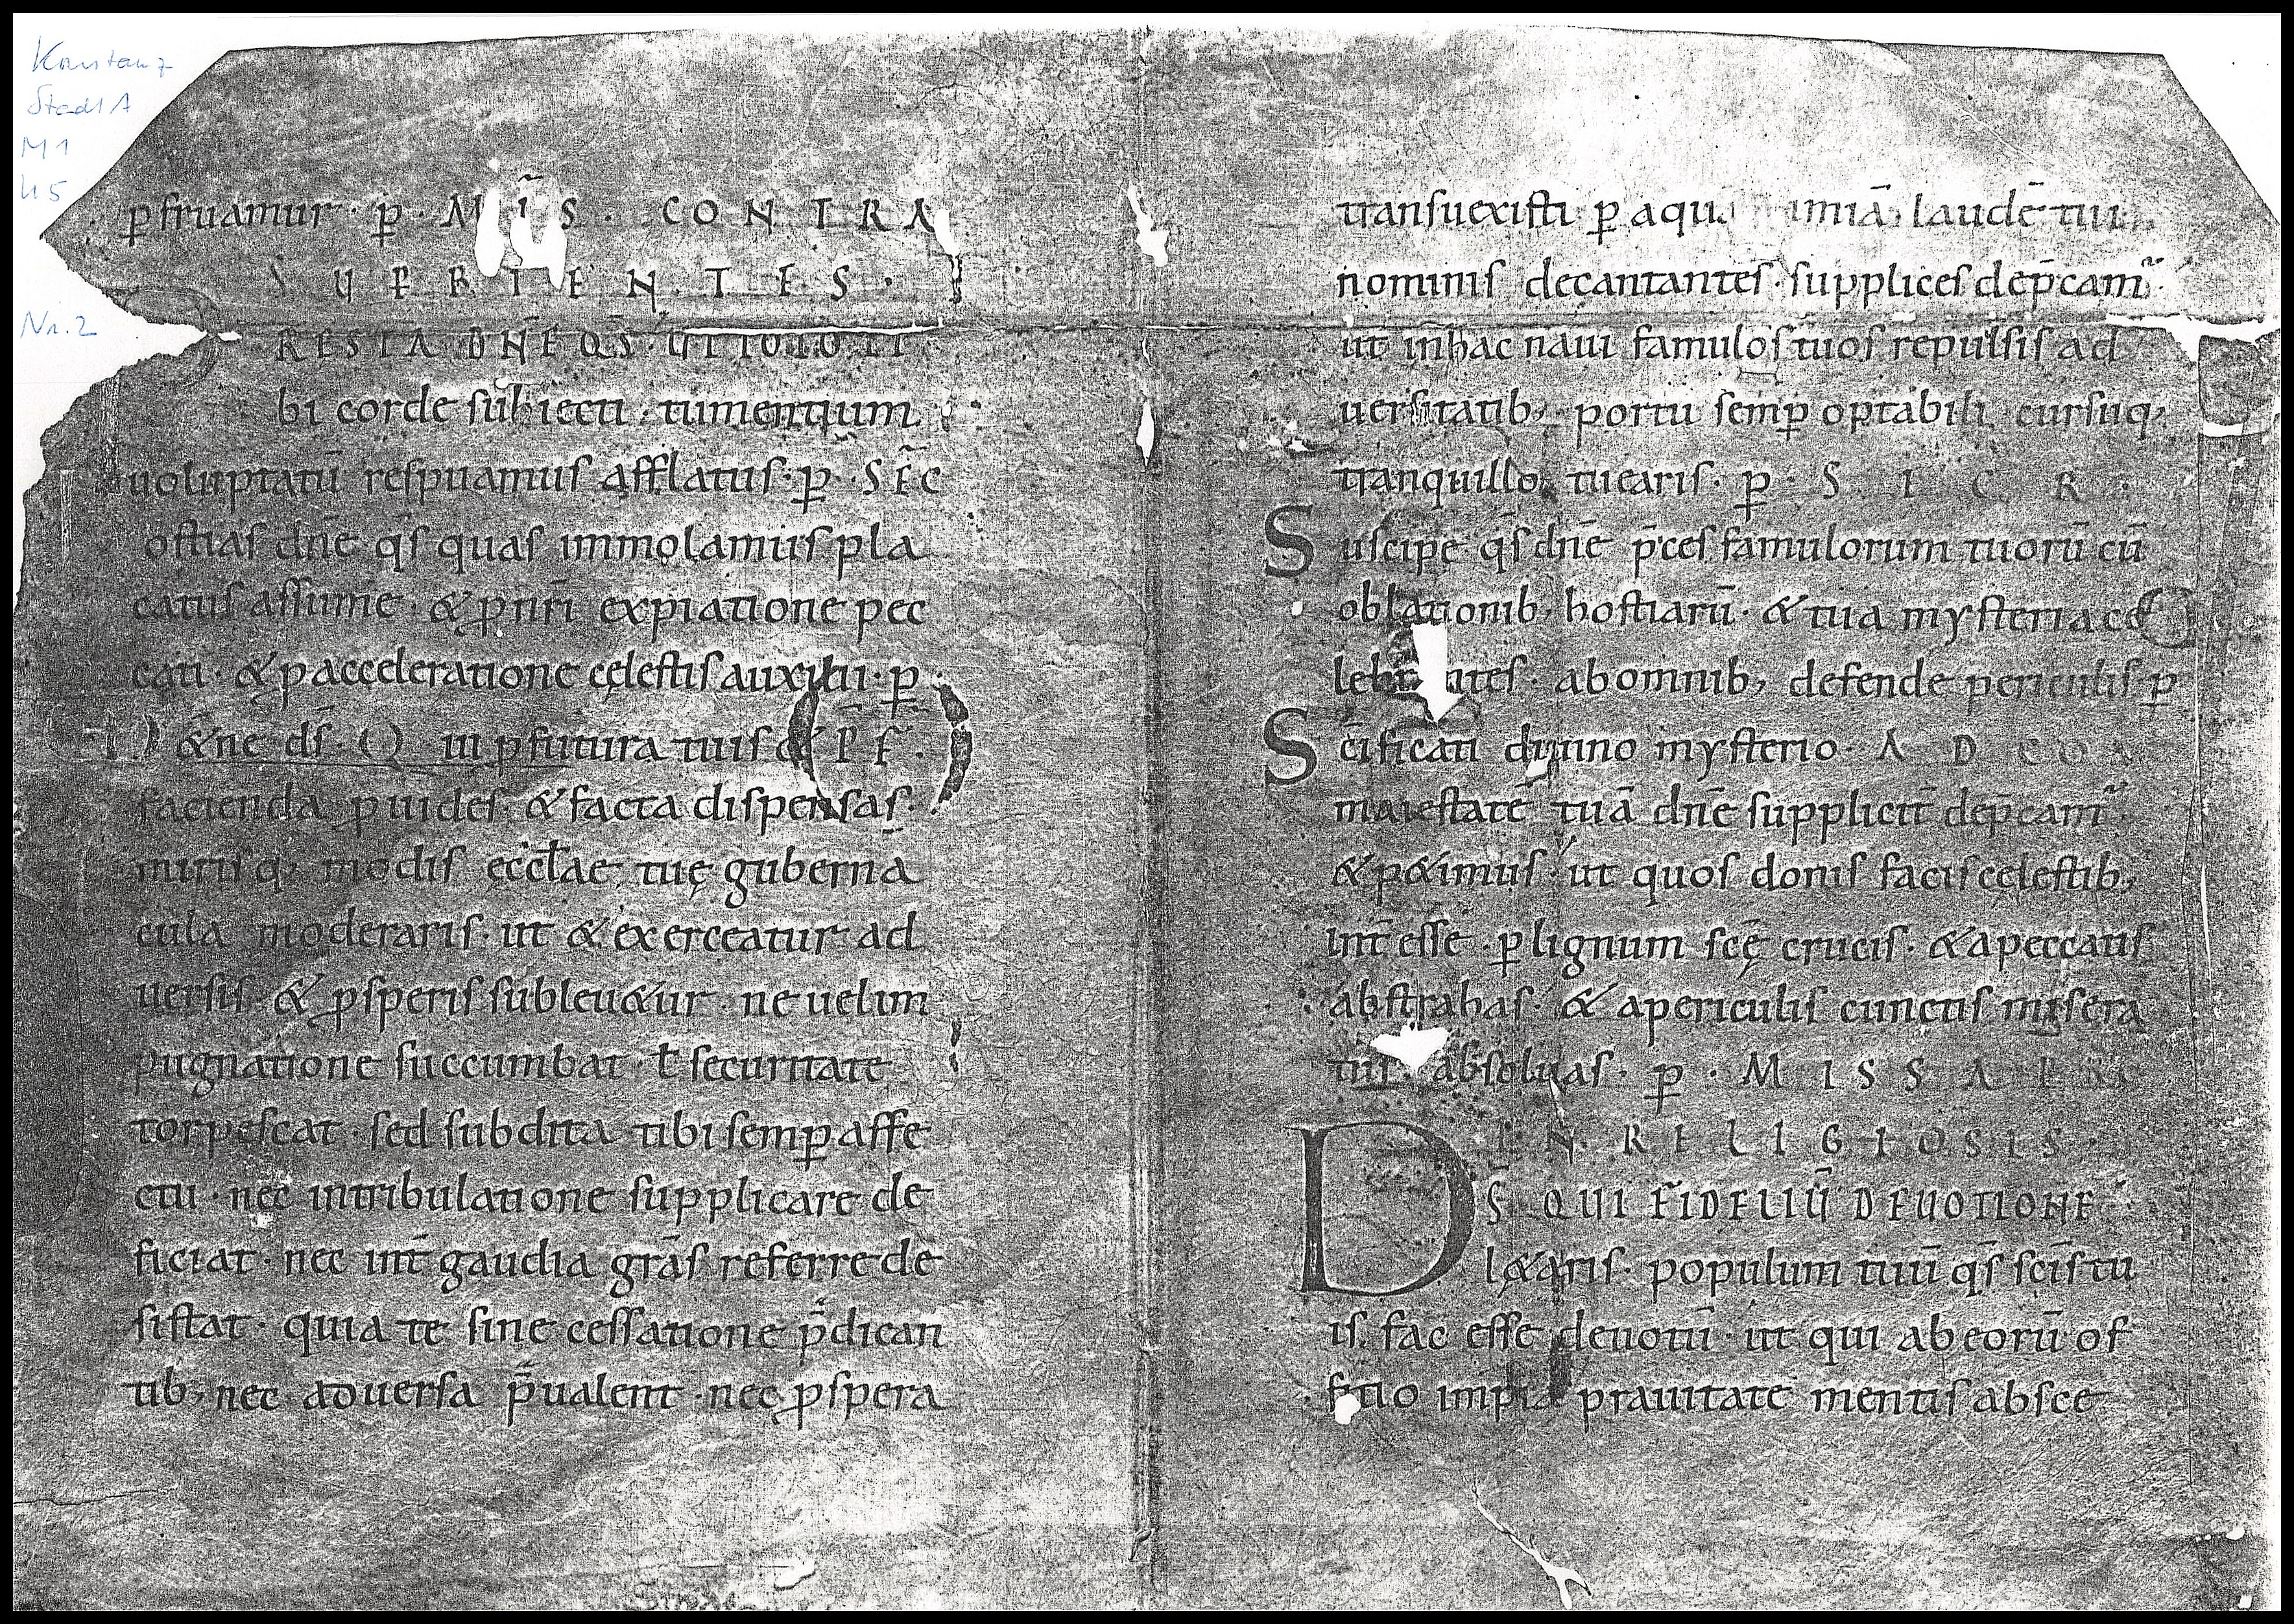 Konstanz
Stadt A
M 1
45
Nr. 2
ꝑfruamur · ꝑ · MIS̄ · CONTRA
SUꝐBIENTES ·
RESTA DN̄E QS̄ · UT TOTO TI
bi corde subiecti · tumentium
uoluptatū respuamus afflatus · ꝑ · SEC̄
ostias dn̄e qs̄ quas immolamus pla
catus assume · & ꝓ nr̄i expiatione pec
cati · & ꝓ acceleratione cęlestis auxilii · ꝑ
&ne ds̄ · Qui ꝓfutura tuis & P̄F̄ ·
facienda ꝓuides · & facta dispensas ·
mirisq; modis ęccłae tuę gubernā
cula moderaris · ut & exerceatur ad
uersis · & ꝓsperis subleu&ur · ne uel im
pugnatione succumbat · ł securitate
torpescat · sed subdita tibi semꝑ affe
ctu · nec in tribulatione supplicare de
ficiat · nec int̄ gaudia grās referre de
sistat · quia te sine cessatione p̄dican
tib; nec aduersa p̄ualent · nec ꝓspera
transuexisti ꝑ aqu imiā laudē tui
nominis decantantes · supplices dep̄cam̄
ut in hac naui famulos tuos repulsis ad
uersitatib; portu semꝑ optabili cursuq;
tranquillo tuearis · ꝑ · SICR ·
Suscipe qs̄ dn̄e p̄ces famulorum tuorū cū
oblationib; hostiarū · & tua mysteria ce
lebrantes · ab omnib; defende periculis · ꝑ
Sc̄ificati diuino mysterio · AD COM̄
maiestatē tuā dn̄e supplicit̄ dep̄cam̄ ·
& p&imus · ut quos donis facis cęlestib;
int̄esse · ꝑ lignum sc̄ę crucis · & a peccatis
abstrahas · & a periculis cunctis misera
tus absoluas · ꝑ · MISSA PRO
IN RELIGIOSIS ·
DS̄ QUI FIDELIŪ DEUOTIONE
l&aris · populum tuū qs̄ sc̄is tu
is fac esse deuotū · ut qui ab eorū of
ficio impia prauitate mentis absce